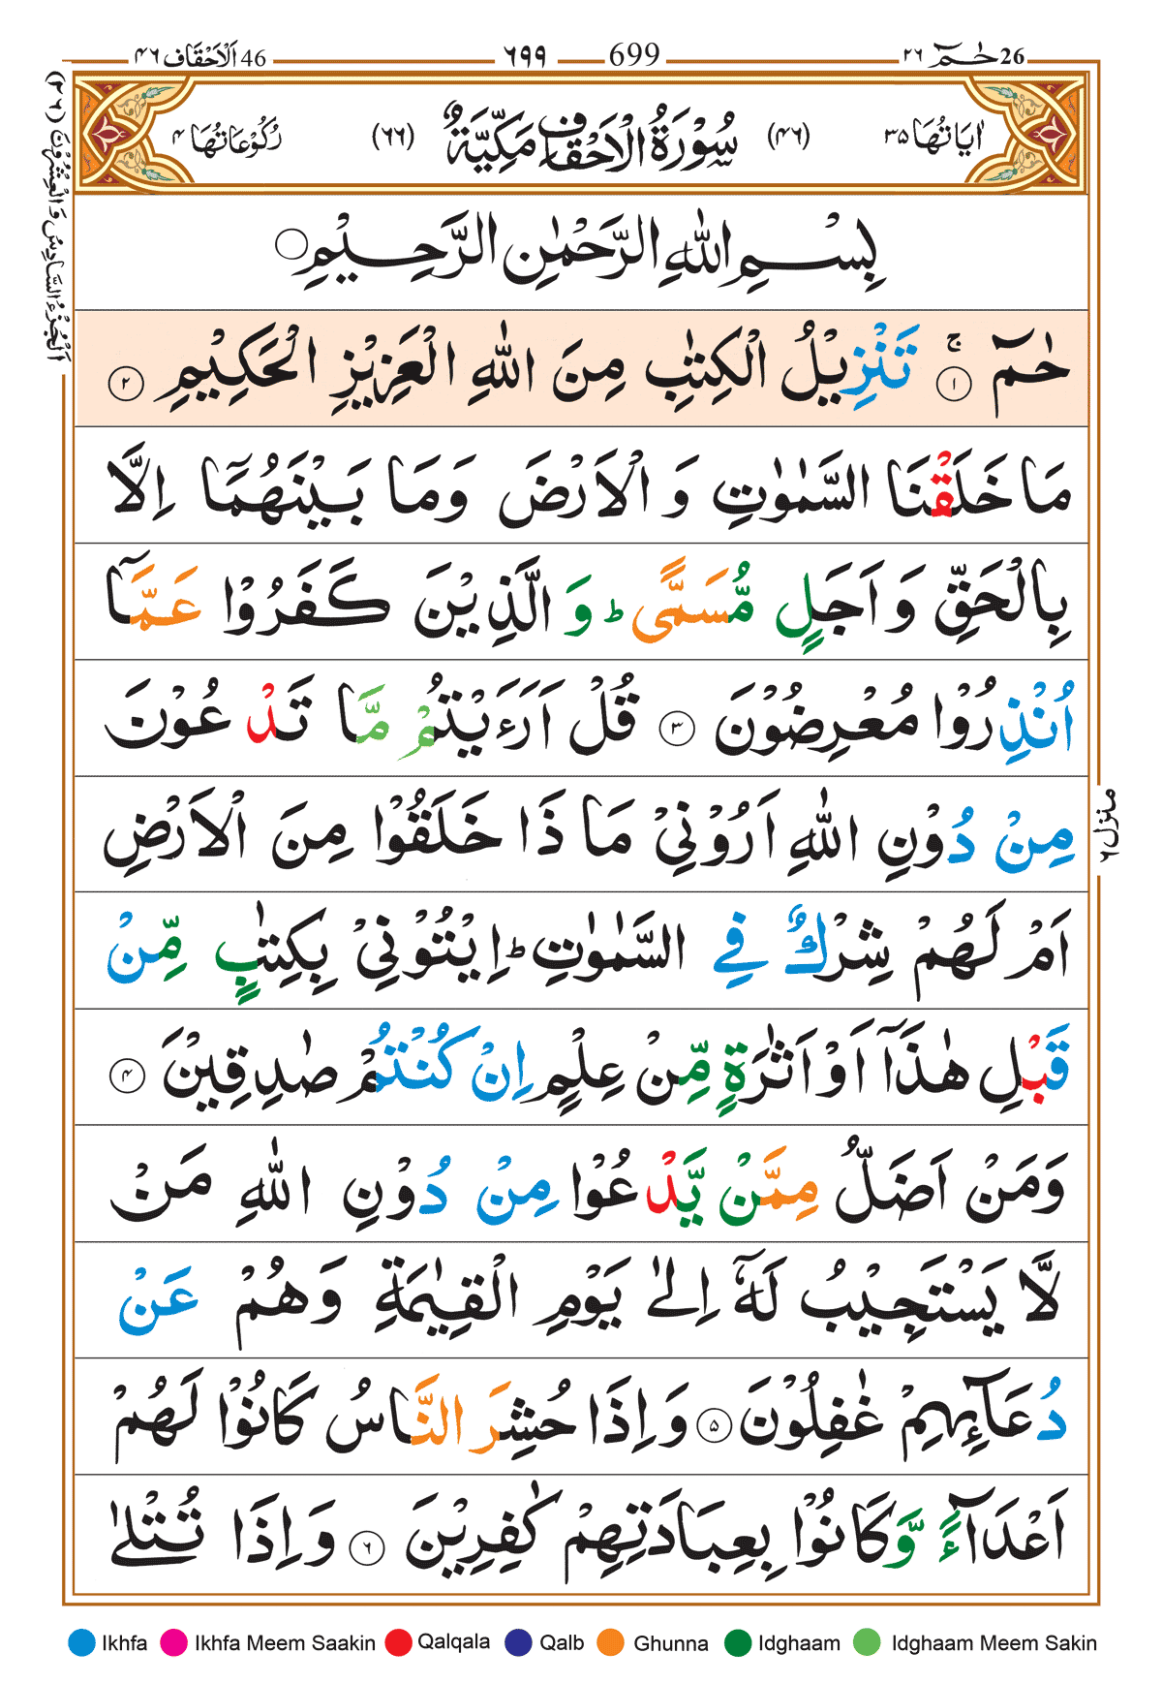 46 اَلْاَحْقَاف ٤٦
٦٩٩ — 699
26 حٰمٓ ٢٦
اٰيَاتُهَا ٣٥ (٤٦) سُوْرَةُ الْاَحْقَافِ مَكِّيَّةٌ (٦٦) رُكُوْعَاتُهَا ٤
اَلْجُزْءُ السَّادِسُ وَالْعِشْرُوْنَ (٢٦)
بِسْمِ اللّٰهِ الرَّحْمٰنِ الرَّحِيْمِ
حٰمٓ ۚ﴿۱﴾ تَنْزِيْلُ الْكِتٰبِ مِنَ اللّٰهِ الْعَزِيْزِ الْحَكِيْمِ ﴿۲﴾
مَا خَلَقْنَا السَّمٰوٰتِ وَ الْاَرْضَ وَمَا بَيْنَهُمَاۤ اِلَّا
بِالْحَقِّ وَ اَجَلٍ مُّسَمًّى ؕ وَ الَّذِيْنَ كَفَرُوْا عَمَّاۤ
اُنْذِرُوْا مُعْرِضُوْنَ ﴿۳﴾ قُلْ اَرَءَيْتُمْ مَّا تَدْعُوْنَ
مِنْ دُوْنِ اللّٰهِ اَرُوْنِيْ مَا ذَا خَلَقُوْا مِنَ الْاَرْضِ
اَمْ لَهُمْ شِرْكٌ فِي السَّمٰوٰتِ ؕ اِيْتُوْنِيْ بِكِتٰبٍ مِّنْ
قَبْلِ هٰذَاۤ اَوْ اَثٰرَةٍ مِّنْ عِلْمٍ اِنْ كُنْتُمْ صٰدِقِيْنَ ﴿۴﴾
وَمَنْ اَضَلُّ مِمَّنْ يَّدْعُوْا مِنْ دُوْنِ اللّٰهِ مَنْ
لَّا يَسْتَجِيْبُ لَهٗۤ اِلٰى يَوْمِ الْقِيٰمَةِ وَهُمْ عَنْ
دُعَآئِهِمْ غٰفِلُوْنَ ﴿۵﴾ وَ اِذَا حُشِرَ النَّاسُ كَانُوْا لَهُمْ
اَعْدَآءً وَّ كَانُوْا بِعِبَادَتِهِمْ كٰفِرِيْنَ ﴿۶﴾ وَ اِذَا تُتْلٰى
منزل ٦
Ikhfa Ikhfa Meem Saakin Qalqala Qalb Ghunna Idghaam Idghaam Meem Sakin